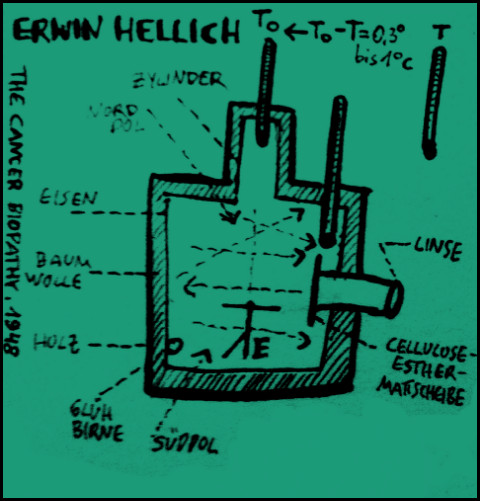 ERWIN HELLICH
To ← To-T=0,3°
bis 1°C
T
THE CANCER BIOPATHY, 1948
ZYLINDER
NORD
POL
EISEN
BAUM
WOLLE
HOLZ
GLÜH
BIRNE
SÜDPOL
E
LINSE
CELLULOSE-
ESTHER-
MATTSCHEIBE